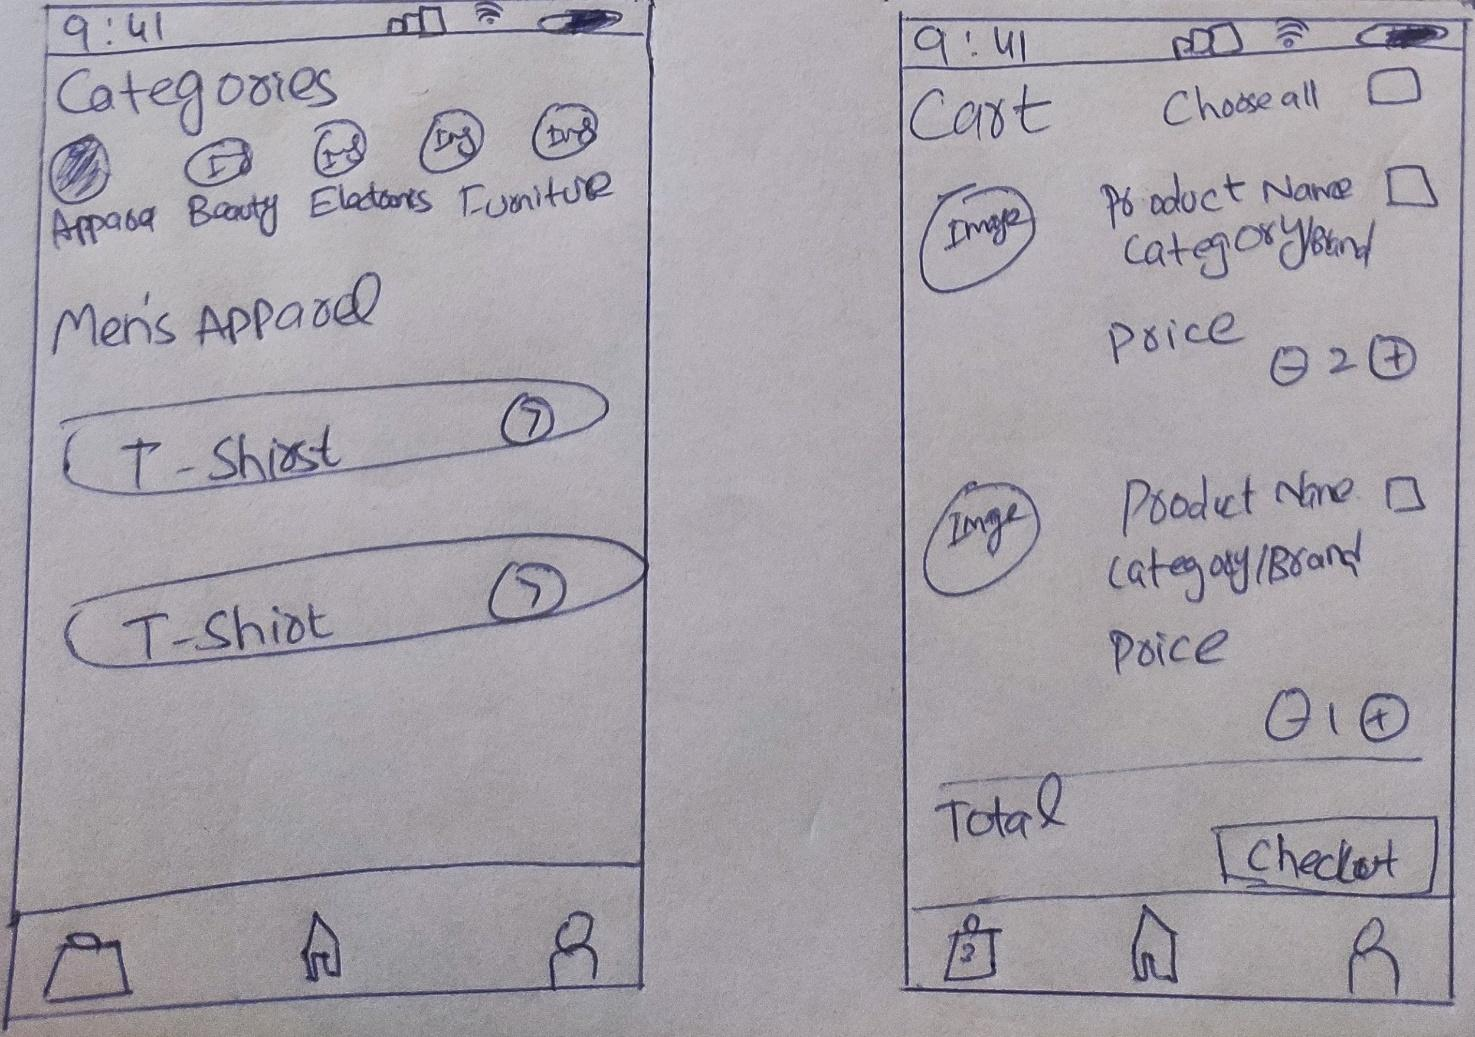 9:41
Categories
Img Img Img
Beauty Electonts Furniture
Men's Apparel
T-Shirst
>
T-Shirt
>
9:41
Cart
Choose all
Image
Product Name
Category/Brand
Price
- 2 +
Imge
Product Name
Category/Brand
Price
- 1 +
Total
Checkot
3